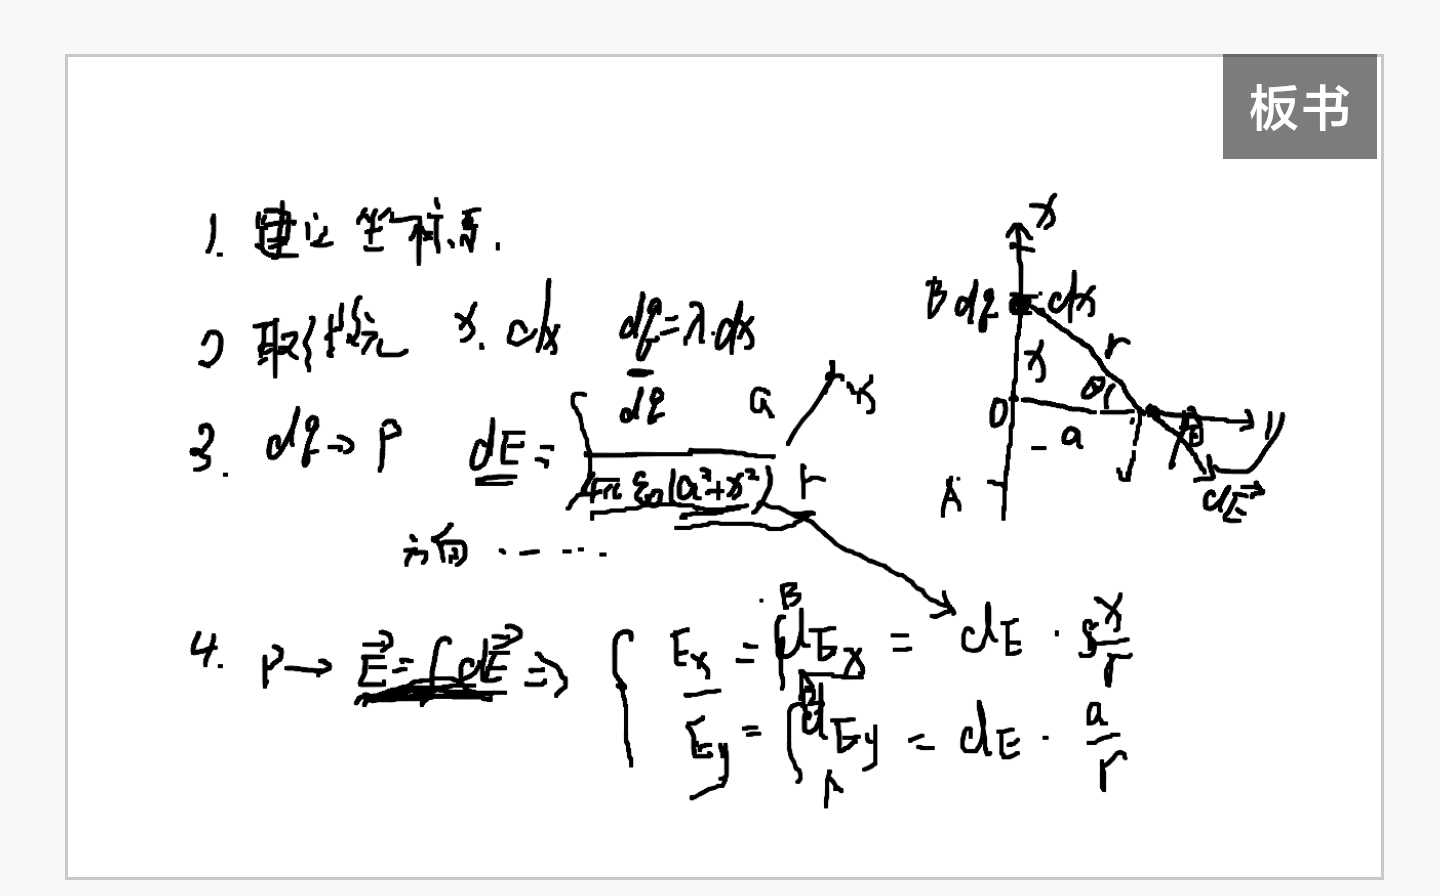 板书
1. 建立坐标系.
2 取代元 x. dx dq=λ.dx
3. dq→P dE= dq / 4πε₀(a²+x²)
a x
r
方向 ......
4. P→ E⃗=∫dE⃗ ⇒
Ex = ∫ᴮ dEx = dE · x/r
Ey = ∫ dEy = dE · a/r
x
B dq dx
r
x
θ
O a θ y
A dE⃗